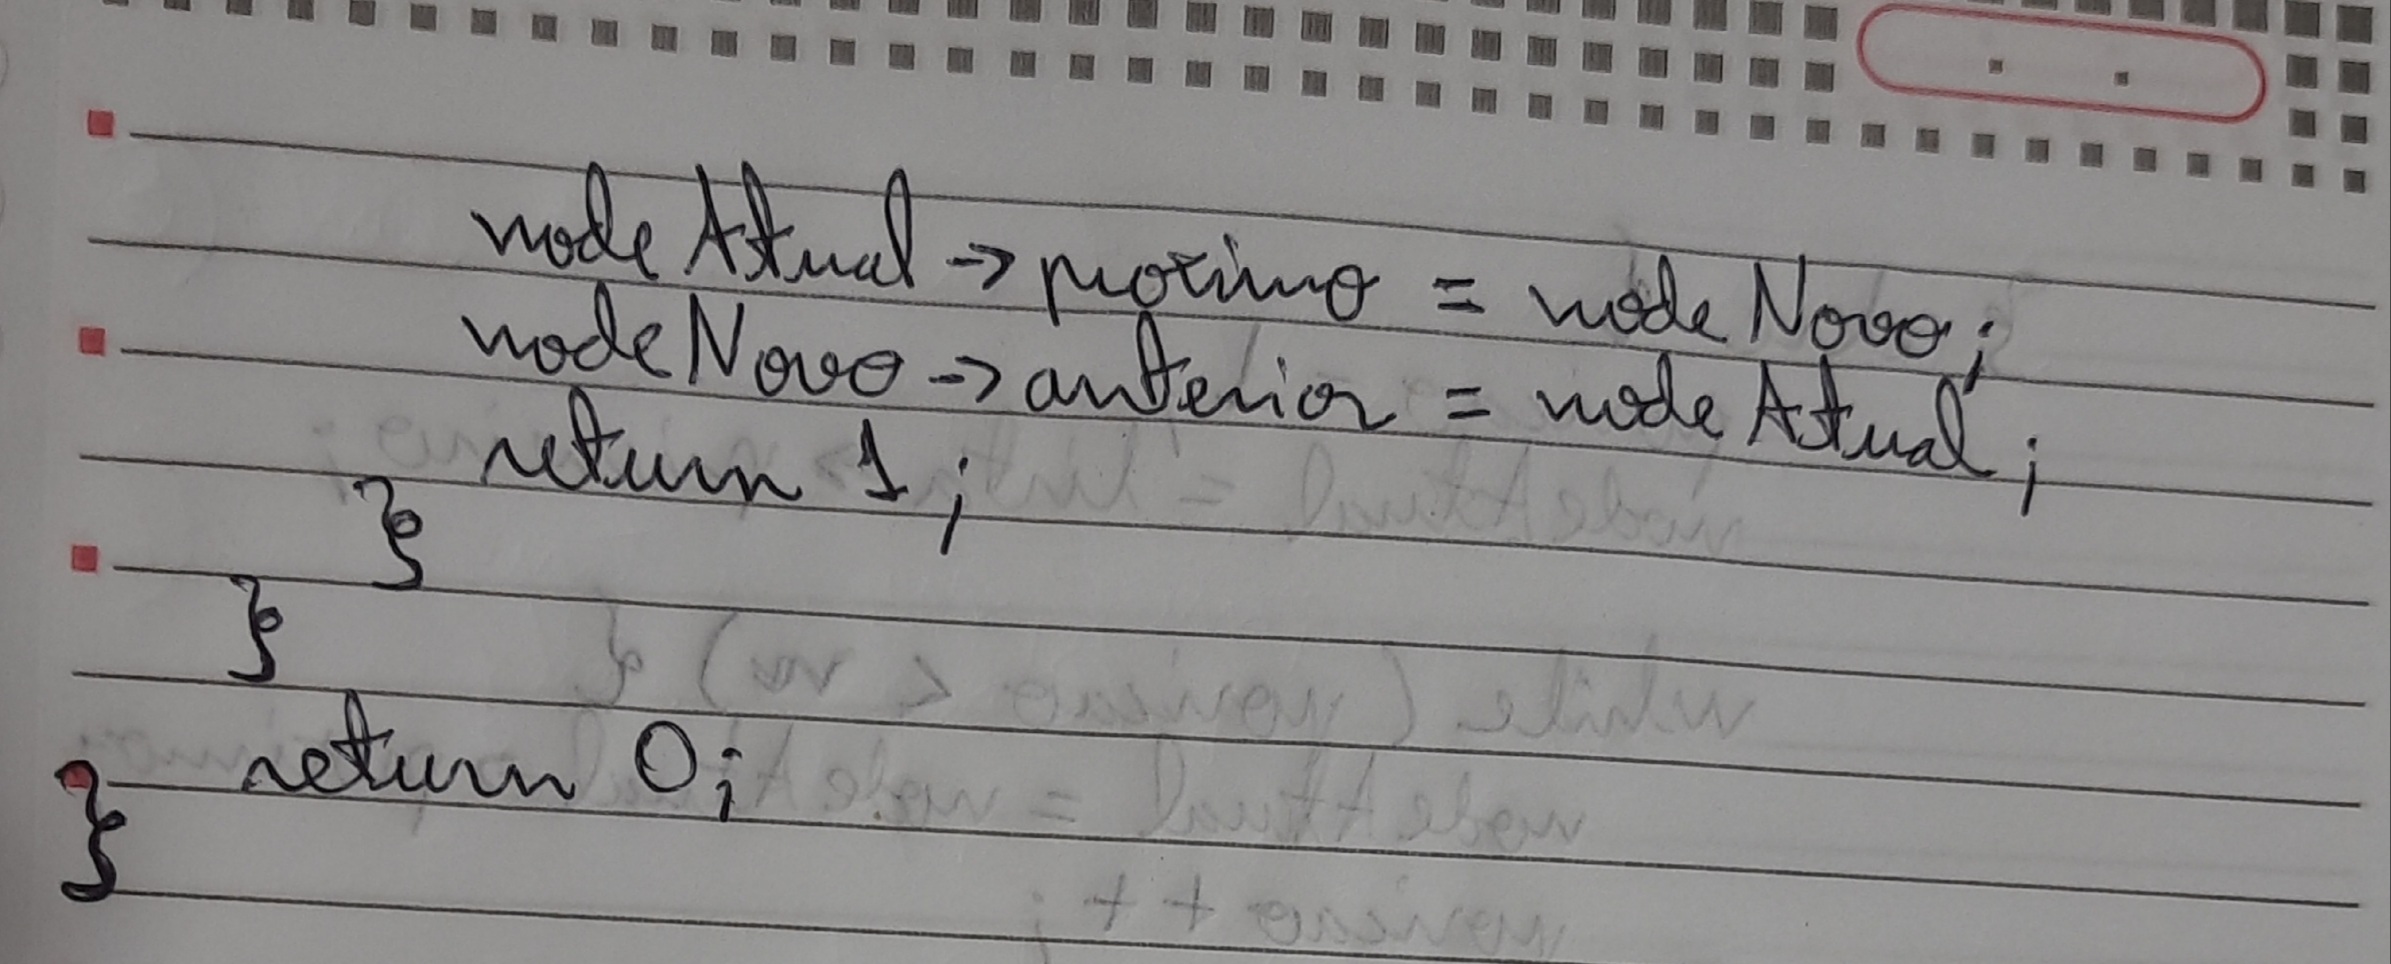 nodeAtual -> proximo = nodeNovo;
nodeNovo -> anterior = nodeAtual;
return 1;
}
}
return 0;
}